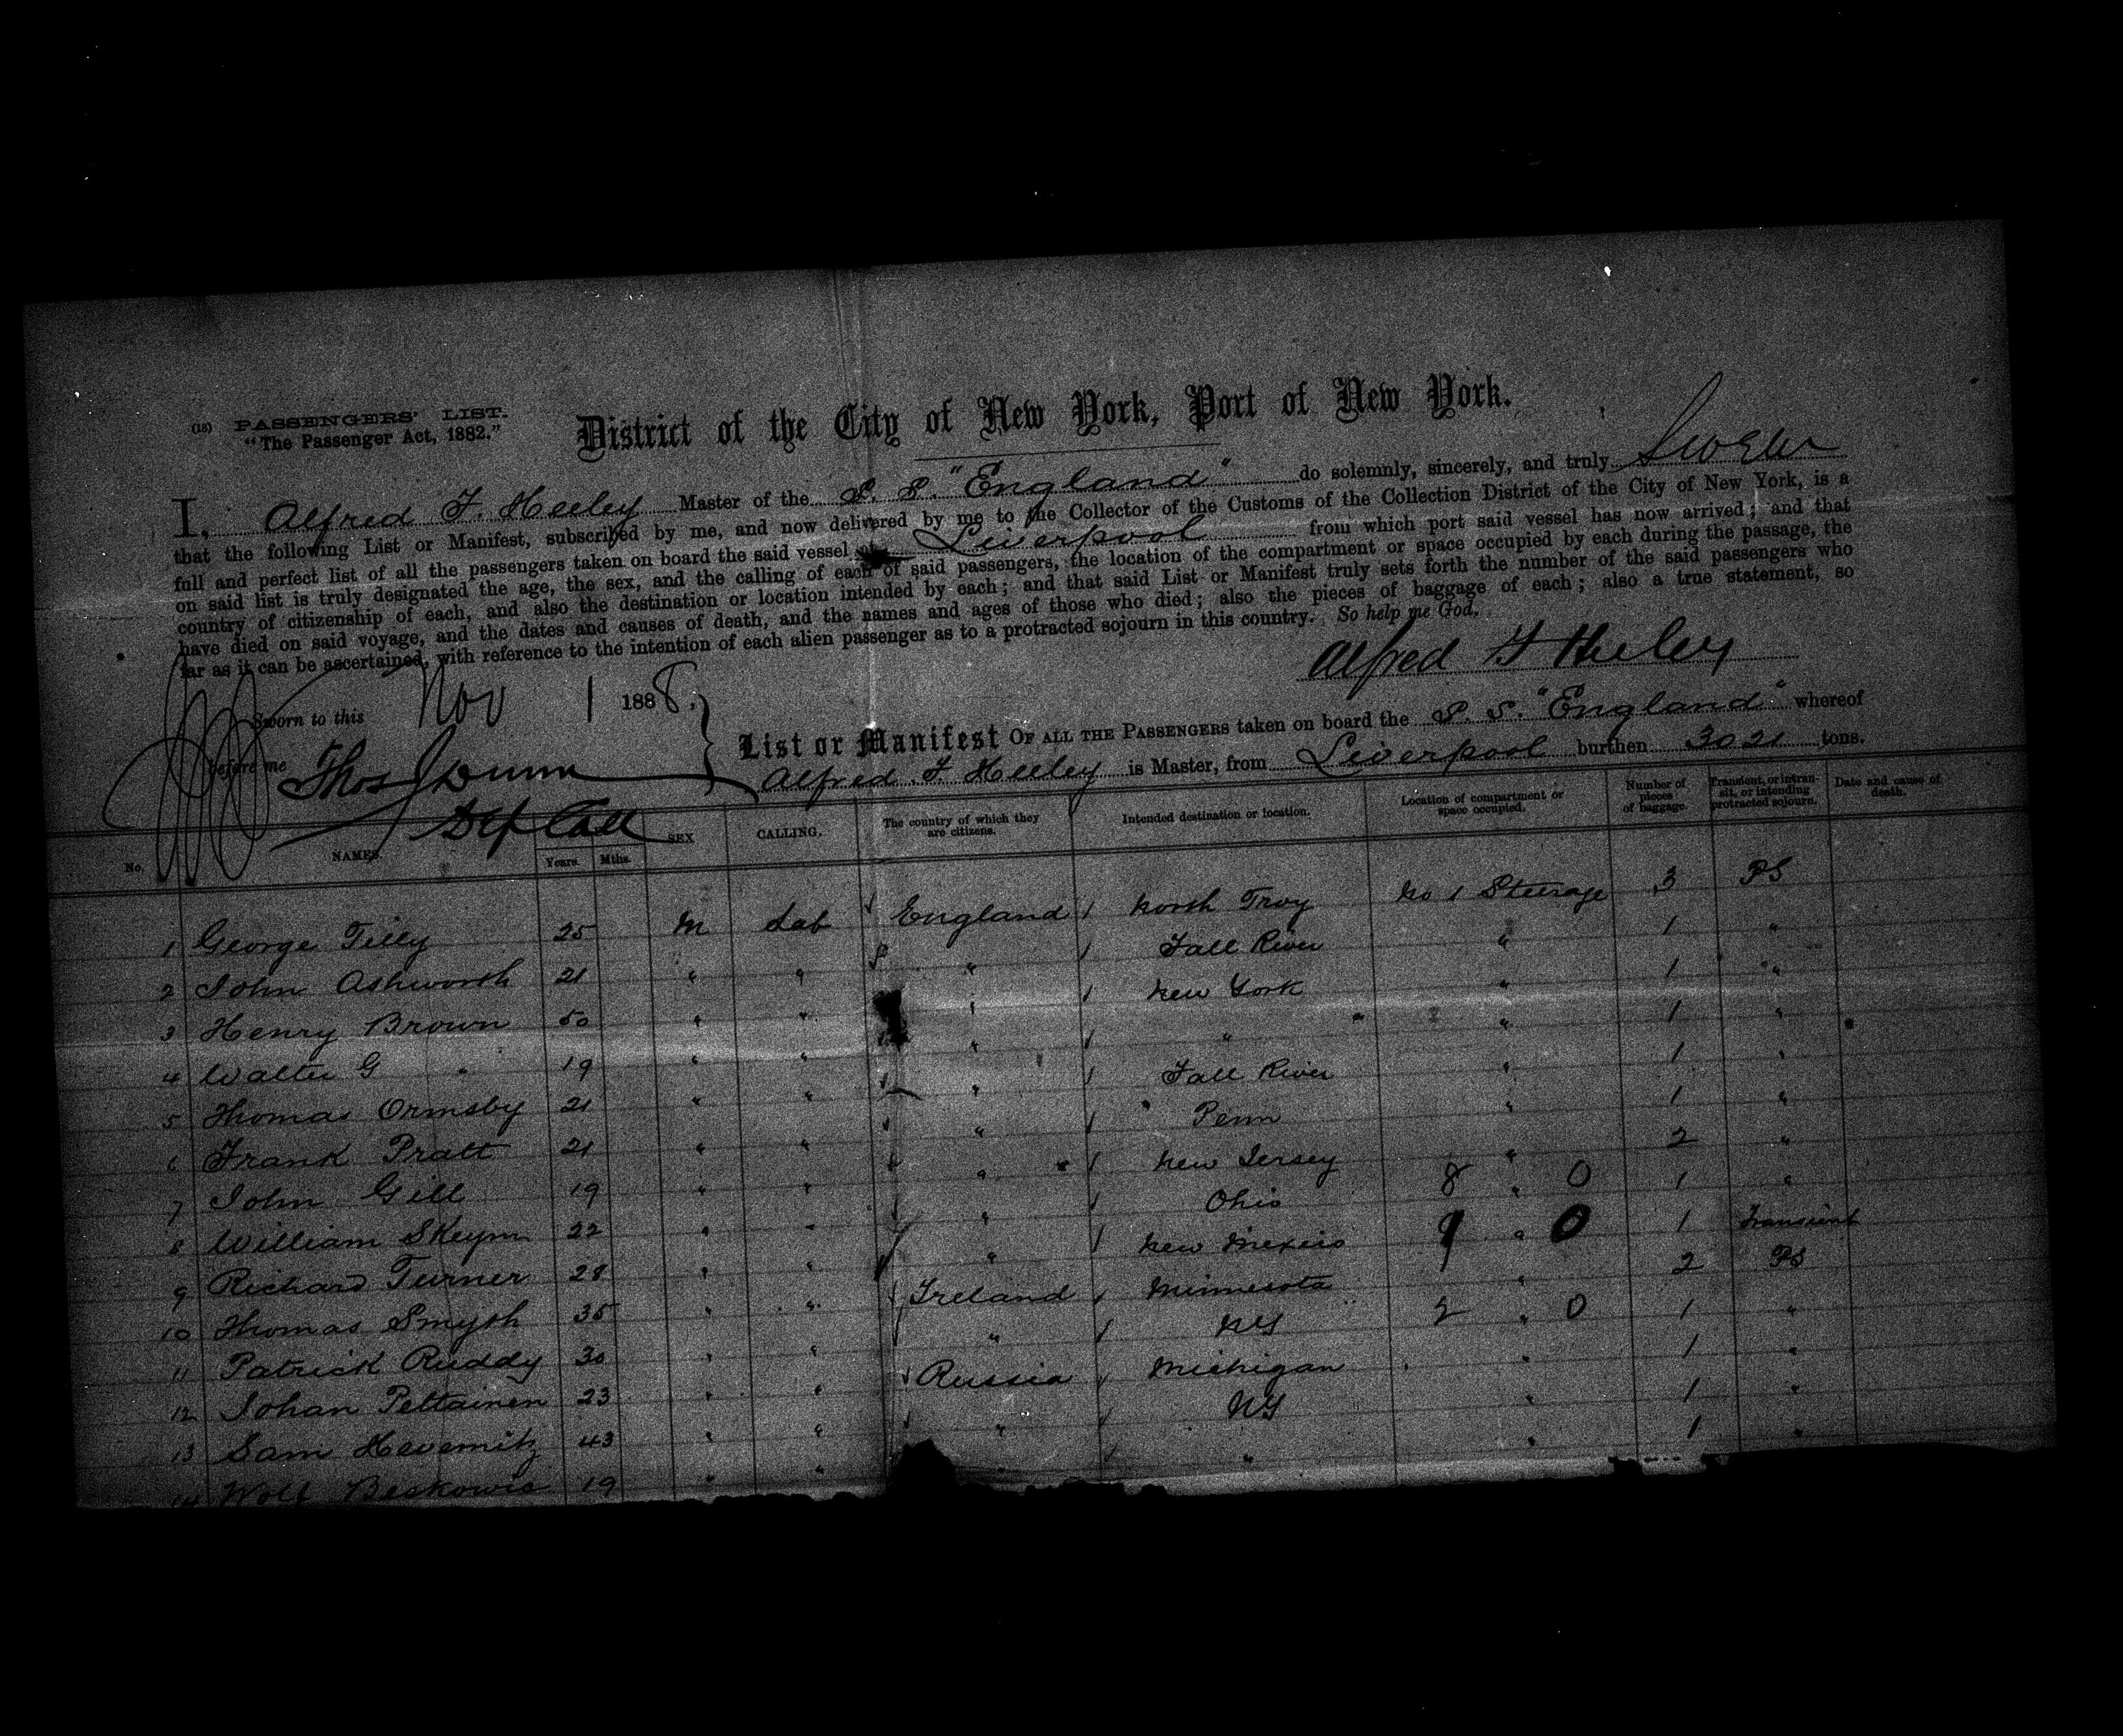 (18) PASSENGERS' LIST.
"The Passenger Act, 1882."
District of the City of New York, Port of New York.
I, Alfred F. Heeley Master of the S. S. "England" do solemnly, sincerely, and truly Swear
that the following List or Manifest, subscribed by me, and now delivered by me to the Collector of the Customs of the Collection District of the City of New York, is a
full and perfect list of all the passengers taken on board the said vessel at Liverpool from which port said vessel has now arrived; and that
on said list is truly designated the age, the sex, and the calling of each of said passengers, the location of the compartment or space occupied by each during the passage, the
country of citizenship of each, and also the destination or location intended by each; and that said List or Manifest truly sets forth the number of the said passengers who
have died on said voyage, and the dates and causes of death, and the names and ages of those who died; also the pieces of baggage of each; also a true statement, so
far as it can be ascertained, with reference to the intention of each alien passenger as to a protracted sojourn in this country. So help me God.
Alfred F Heeley
Sworn to this Nov 1 1888.
before me Thos J Dunn
Dep Coll
List or Manifest OF ALL THE PASSENGERS taken on board the S. S. "England" whereof
Alfred F. Heeley is Master, from Liverpool burthen 3021 tons.
No. NAMES. Years. Mths. SEX CALLING. The country of which they are citizens. Intended destination or location. Location of compartment or space occupied. Number of pieces of baggage. Transient, or intransit, or intending protracted sojourn. Date and cause of death.
1 George Tilly 25 M Lab England North Troy No 1 Steerage 3 PS
2 John Ashworth 21 " " " Fall River " 1 "
3 Henry Brown 50 " " " New York " 1 "
4 Walter G " 19 " " " " " 1 "
5 Thomas Ormsby 21 " " " Fall River " 1 "
6 Frank Pratt 21 " " " Penn " 1 "
7 John Gill 19 " " " New Jersey " 2 "
8 William Skeym 22 " " " Ohio 8 " 0 1 "
9 Richard Turner 28 " " " New Mexico 9 " 0 1 Transient
10 Thomas Smyth 35 " " Ireland Minnesota " 2 PS
11 Patrick Ruddy 30 " " " NY 2 " 0 1 "
12 Johan Peltainen 23 " " Russia Michigan " 1 "
13 Sam 43 " " " NY " 1 "
14 Wolf Beskowis 19 " " " " " 1 "